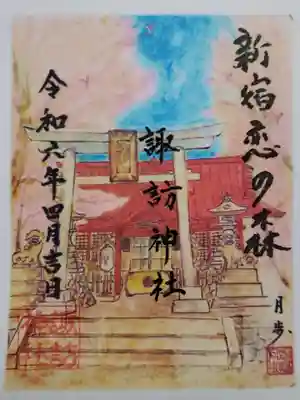 新宿恋の森
諏訪神社
令和六年四月吉日
月歩